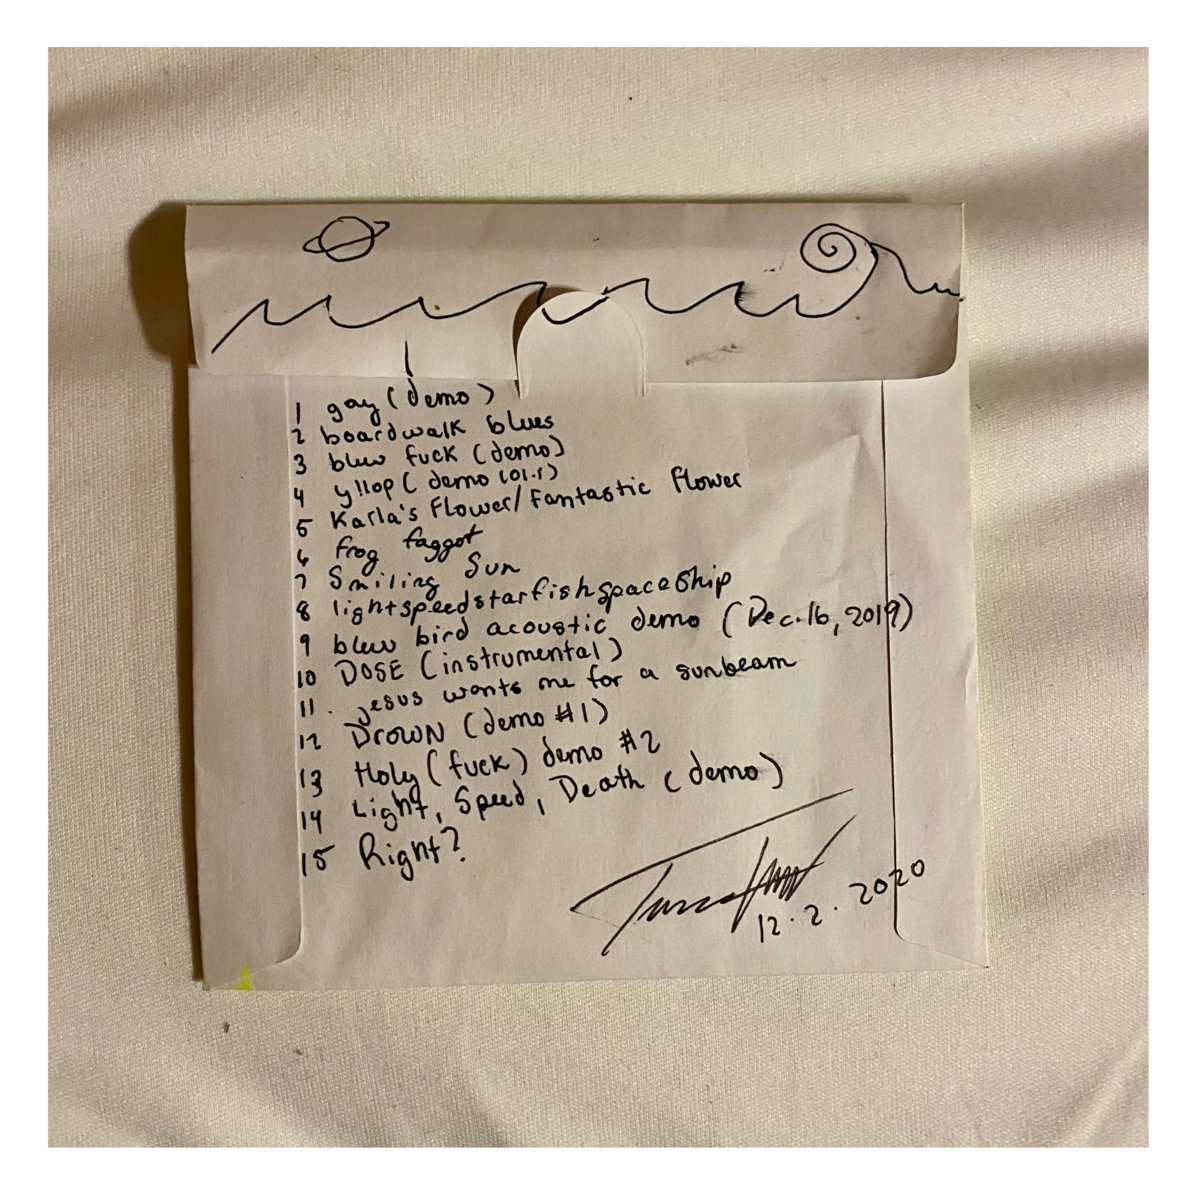 1 gay (demo)
2 boardwalk blues
3 bluu fuck (demo)
4 yllop (demo 101.1)
5 Karla's Flower/Fantastic Flower
6 frog faggot
7 Smiling Sun
8 lightspeedstarfishspaceship
9 bluu bird acoustic demo (Dec. 16, 2019)
10 DOSE (instrumental)
11. jesus wants me for a sunbeam
12 Drown (demo #1)
13 Holy (fuck) demo #2
14 Light, Speed, Death (demo)
15 Right?
12.2.2020